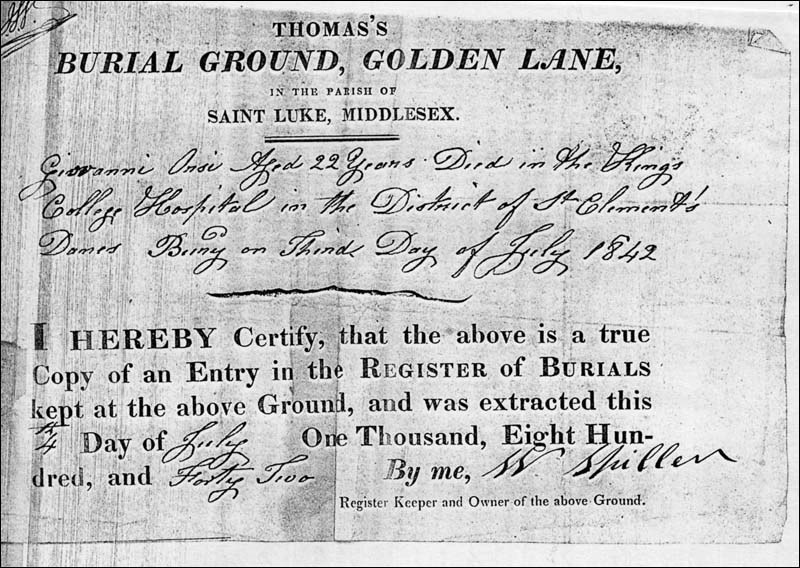 THOMAS'S
BURIAL GROUND, GOLDEN LANE,
IN THE PARISH OF
SAINT LUKE, MIDDLESEX.
Giovanni Orsi Aged 22 Years Died in the Kings
College Hospital in the District of St Clement's
Danes on Third Day of July 1842
I HEREBY Certify, that the above is a true
Copy of an Entry in the REGISTER of BURIALS
kept at the above Ground, and was extracted this
4th Day of July One Thousand, Eight Hun-
dred, and Forty Two By me, W Spiller
Register Keeper and Owner of the above Ground.